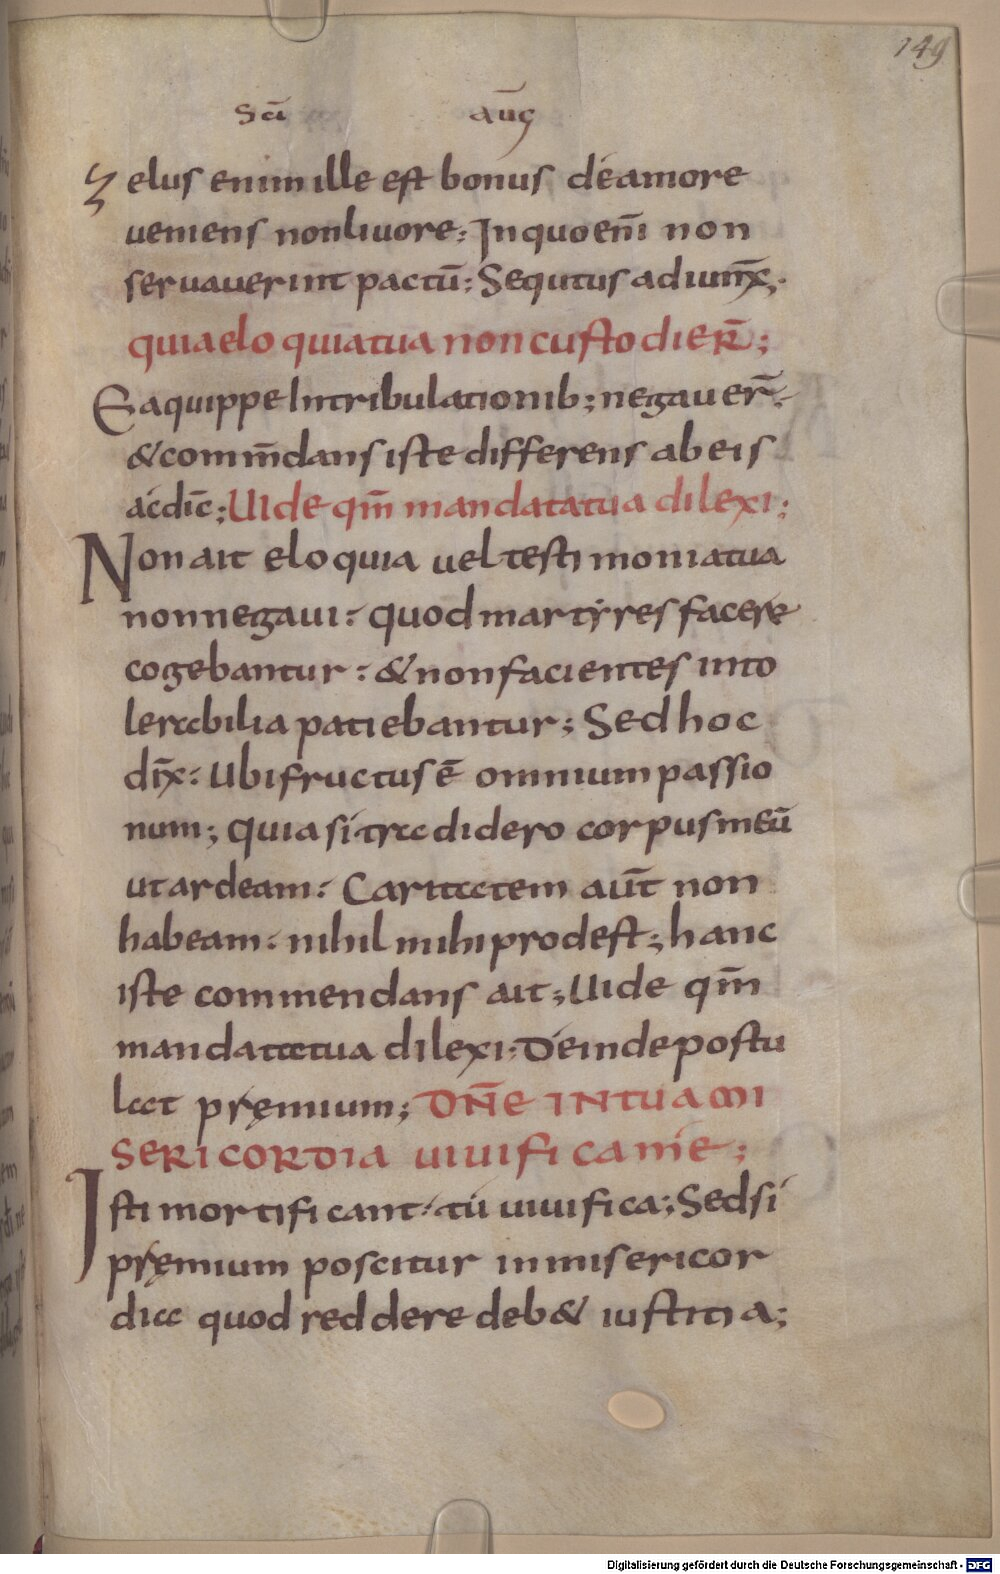 149
scī aūg
Zelus enim ille est bonus de amore
veniens non livore: In quo enī non
servaverint pactū: Sequitus adiunx̄;
quia eloquia tua non custodier̄;
Ea quippe In tribulationib; negaver̄
& comm̄dans iste differens ab eis
ac dic̄; Uide qm̄ mandata tua dilexi;
Non ait eloquia vel testimonia tua
non negavi: quod martyres facere
cogebantur: & non facientes into
lerabilia patiebantur; Sed hoc
dix̄: Ubi fructus ē omnium passio
num; quia si tradidero corpus meū
ut ardeam: Caritatem aut̄ non
habeam: nihil mihi prodest; hanc
iste commendans ait; Uide qm̄
mandata tua dilexi: Deinde postu
lat pręmium; DN̄E IN TUA MI
SERICORDIA vivifica me;
Isti mortificant: tu vivifica; Sed si
pręmium poscitur in misericor
dia quod reddere deb& iustitia;
Digitalisierung gefördert durch die Deutsche Forschungsgemeinschaft - DFG